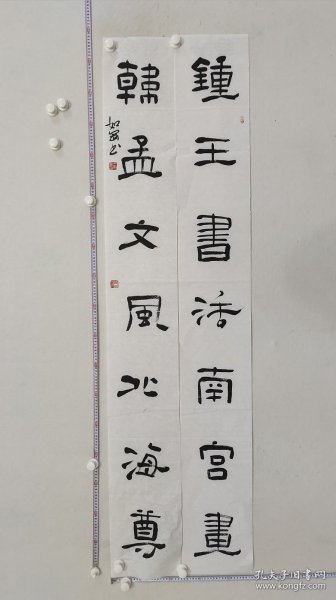 鍾王書法南宮畫
韓孟文風北海尊
孔夫子旧书网
www.kongfz.com